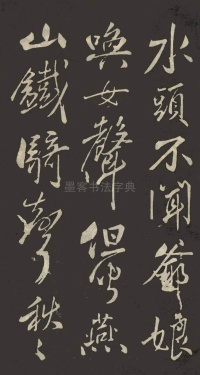 水頭不聞爺娘
喚女聲但聞燕
山鐵騎聲秋〻
墨客书法字典